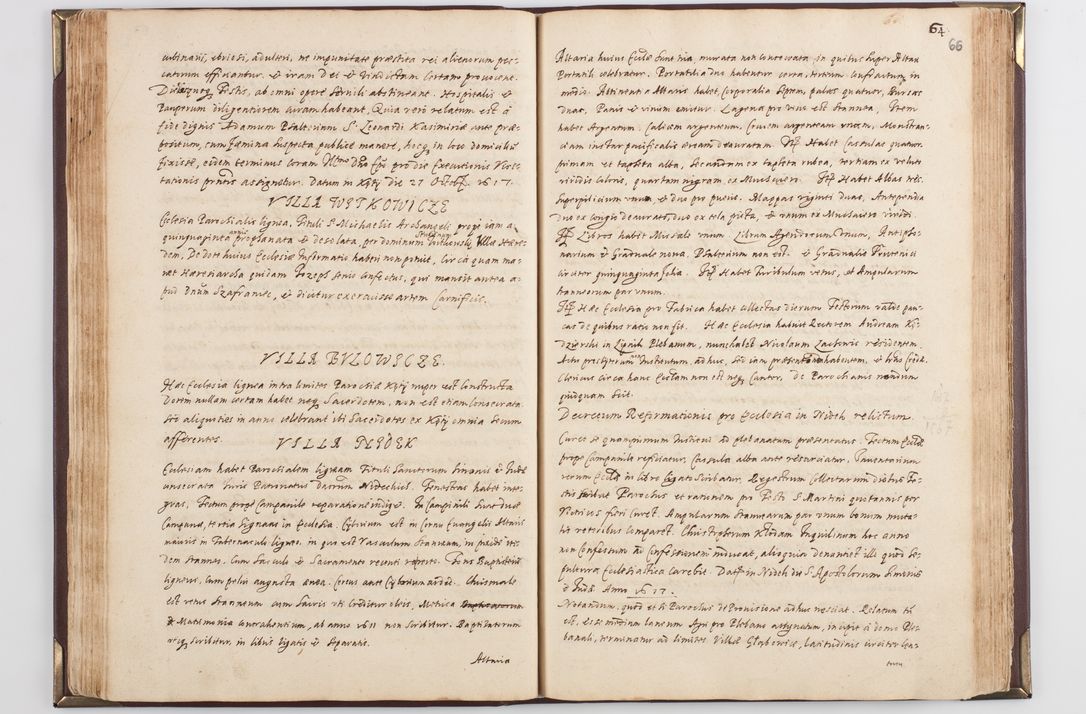 cubinarii, ebriosi, adulteri, ne impunitate præstita rei alienorum pec-
catorum efficiantur. & iram Dei & Vindictam Coram provocent.
Diebusque Festis, ab omni opere servili abstineant. Hospitalis &
Pauperum diligentiorem curam habeant. Quia vero relatum est à
fide dignis Adamum Psalterium S. Leonardi Kasimiriæ ante præ-
positum, cum fæmina suspecta publice manere, hocque in loco domicilium
fixisse, eidem terminus coram Illmo Dno Epo pro die Executionis Visi-
tationis præsentis assignetur. Datum in Kęty die 27 Octobr. 1617.
VILLA WITKOWICZE
Ecclesia Parochialis lignea, Tituli S. Michaelis Archangeli prope iam a
quinquaginta annis prophanata & desolata, per dominum Villæ Hære-
dem, De dote huius Ecclesiæ Informatio haberi non potuit, Circa quam ma-
net Hæresiarcha quidam Joseph senio confectus, qui mansit antea a-
pud Dnum Szafraniec, & dicitur exercuisse artem Carnificis.
VILLA BVLOWICZE.
Hæc Ecclesia lignea intra limites Parochiæ Kęty nuper est constructa
Dotem nullam certam habet neque Sacerdotem, non est etiam consecrata.
Sed aliquoties in anno celebrant ibi Sacerdotes ex Kęty omnia secum
afferentes.
VILLA NIDEK
Ecclesiam habet Parochialem ligneam Tituli Sanctorum Simonis & Judæ
consecrata Juris Patronatus Dnorum Nidechiei. Fenestras habet inte-
gras, Tectum prope Campanile reparatione indiget. In Campinili sunt duæ
Campanæ, tertia signans in Ecclesia. Cyborium est in Cornu Evangelii Altaris
maioris in Tabernaculi ligneo, in quo est Vasculum Stanneum, in pixide iti-
dem stannea. Cum Sacculo & Sacramento recenti reperto. Fons Baptismi
ligneus, cum pelvi angusta ænea. Cereus ante Cyborium ardet. Chrismale
est vetus Stanneum cum Sacris uti creditur oleis, Metrica
& Matrimonia contrahentium, ab anno 1611 non scribitur. Baptizatorum
neque scribitur, in libris ligatis & separatis.
Altaria
64
66
Altaria huius Ecclæ sunt tria, murata non consecrata in quibus super Altari
Portatili celebratur. Portatilia duo habentur certa, tertium confractum in
medio. Attinentia Altaris habet Corporalia Septem, pallas quatuor, Bursas
duas, Panis & vinum emitur. Lagena pro vino est stannea, Item
habet Argentum. Calicem argenteum, Crucem argenteam unam, Monstran-
ciam instar pacificalis æream deauratam. Itt Habet Casulas quatuor.
primam ex tapheta alba, secundam ex tapheta rubea, tertiam ex veluto
viridis coloris, quartam nigram ex Muchaiero. Itt Habet Albas tres.
Superpilicium unum & duo pro pueris. Mappas viginti duas, Antependia
duo ex congio deaurato, duo ex tela picta, & unum ex Muchaiero viridi.
Itt Libros habet Missale unum Librum Agendorum Unum, Antipho-
narium & Graduale nova. Psalterium non est. & Gradualis Proventus
circiter quinquaginta folia. Itt Habet Thuribulum vetus, et Ampularum
stannearum par unum.
Itt Hæc Ecclesia pro Fabrica habet collectas dierum Festorum valde pau-
cas de quibus ratio non fit. Hæc Ecclesia habuit Rectorem Andream Kę-
dzierski in Lipnik Plebanum, nunc habet Nicolaum Zactonis residentem.
Actu presbyterum non Institutum adhuc, sed iam præsentatum habentem, & litis Cedæ.
Clericus circa hanc Ecclam non est neque Cantor, de Parochianis nondum
quidquam scit.
Decretum Reformationis pro Ecclesia in Nidek relictum.
Curet se quamprimum Institui ad plebanatum præsentatus. Tectum Ecclæ
prope Campanile reficiatur, Casula alba ante resarciatur, Inventarium
rerum Ecclæ in libro ligato scribatur, Regestrum Collectarum diebus Fe-
stis scribat Parochus et rationem pro Festo S. Martini quotannis per
Vitricos fieri curet. Ampularum Stannearum par unum bonum muta-
tis vetustibus comparet. Christophorum Inquilinum hoc anno
non confessum ad Confessionem inducat, alioquin denuntiet illi quod se-
pultura Ecclesiastica carebit. Datt in Nidek die S. Apostolorum Simonis
& Judæ Anno 1617.
Notandum, quod etsi Parochus de Provisione adhuc nesciat. Relatum tn
est, esse medium laneum Agri pro Plebano assignatum, incipit à domo Ple-
banali, terminatur ad limites Villæ Głębowice, latitudinis circiter sex-